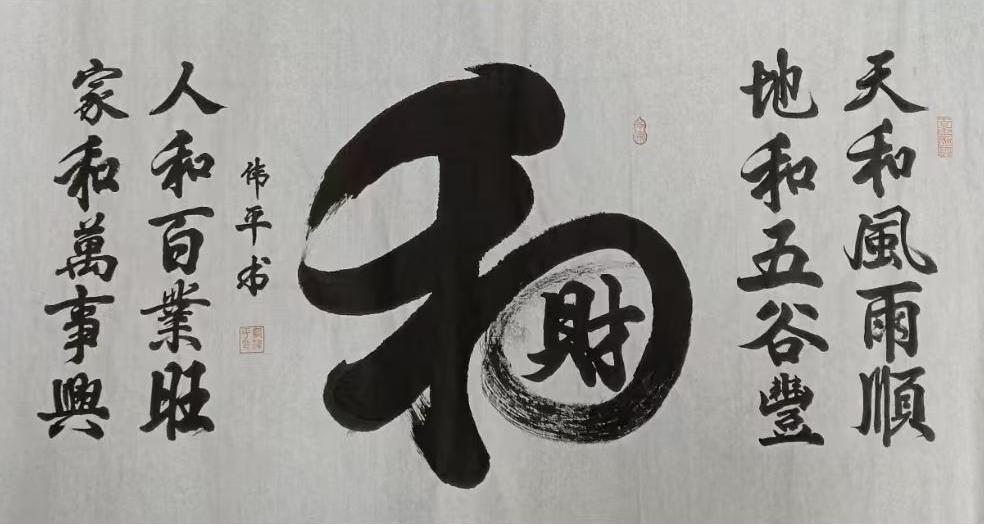 天和風雨順
地和五谷豐
和
財
人和百業旺
家和萬事興
伟平书